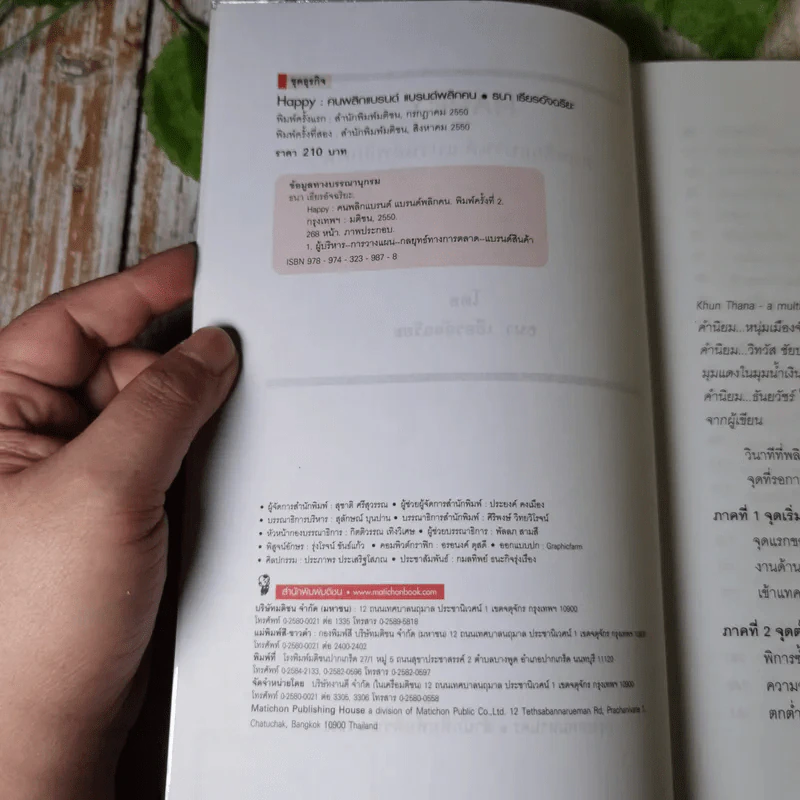 ชุดธุรกิจ
Happy : คนพลิกแบรนด์ แบรนด์พลิกคน • ธนา เธียรอัจฉริยะ
พิมพ์ครั้งแรก : สำนักพิมพ์มติชน, กรกฎาคม 2550
พิมพ์ครั้งที่สอง : สำนักพิมพ์มติชน, สิงหาคม 2550
ราคา 210 บาท
ข้อมูลทางบรรณานุกรม
ธนา เธียรอัจฉริยะ.
Happy : คนพลิกแบรนด์ แบรนด์พลิกคน. พิมพ์ครั้งที่ 2.
กรุงเทพฯ : มติชน, 2550.
268 หน้า. ภาพประกอบ.
1. ผู้บริหาร--การวางแผน--กลยุทธ์ทางการตลาด--แบรนด์สินค้า
ISBN 978 - 974 - 323 - 987 - 8
• ผู้จัดการสำนักพิมพ์ : สุชาติ ศรีสุวรรณ • ผู้ช่วยผู้จัดการสำนักพิมพ์ : ประยงค์ คงเมือง
• บรรณาธิการบริหาร : สุลักษณ์ บุนปาน • บรรณาธิการสำนักพิมพ์ : ศิริพงษ์ วิทยวิโรจน์
• หัวหน้ากองบรรณาธิการ : กิตติวรรณ เทิงวิเศษ • ผู้ช่วยบรรณาธิการ : พัลลภ สามสี
• พิสูจน์อักษร : รุ่งโรจน์ ขันธ์แก้ว • คอมพิวต์กราฟิก : อรอนงค์ ดุสดี • ออกแบบปก : Graphicfarm
• ศิลปกรรม : ประภาพร ประเสริฐโสภณ • ประชาสัมพันธ์ : กมลทิพย์ ธนะกิจรุ่งเรือง
สำนักพิมพ์มติชน • www.matichonbook.com
บริษัทมติชน จำกัด (มหาชน) : 12 ถนนเทศบาลนฤมาล ประชานิเวศน์ 1 เขตจตุจักร กรุงเทพฯ 10900
โทรศัพท์ 0-2580-0021 ต่อ 1335 โทรสาร 0-2589-5818
แม่พิมพ์สี-ขาวดำ : กองพิมพ์สี บริษัทมติชน จำกัด (มหาชน) 12 ถนนเทศบาลนฤมาล ประชานิเวศน์ 1 เขตจตุจักร กรุงเทพฯ 10900
โทรศัพท์ 0-2580-0021 ต่อ 2400-2403
พิมพ์ที่ : โรงพิมพ์มติชนปากเกร็ด 27/1 หมู่ 5 ถนนสุขาประชาสรรค์ 2 ตำบลบางพูด อำเภอปากเกร็ด นนทบุรี 11120
โทรศัพท์ 0-2584-2133, 0-2582-0596 โทรสาร 0-2582-0597
จัดจำหน่ายโดย : บริษัทงานดี จำกัด (ในเครือมติชน) 12 ถนนเทศบาลนฤมาล ประชานิเวศน์ 1 เขตจตุจักร กรุงเทพฯ 10900
โทรศัพท์ 0-2580-0021 ต่อ 3305, 3306 โทรสาร 0-2580-0558
Matichon Publishing House a division of Matichon Public Co.,Ltd. 12 Tethsabannarueman Rd, Prachanivate 1,
Chatuchak, Bangkok 10900 Thailand
Khun Thana - a mult
คำนิยม...หนุ่มเมือง
คำนิยม...วิทวัส ชัย
มุมแดงในมุมน้ำเงิน
คำนิยม...ธันยวัชร์
จากผู้เขียน
วินาทีที่พลิ
จุดที่รอกา
ภาคที่ 1 จุดเริ่ม
จุดแรกข
งานด้าน
เข้าแทค
ภาคที่ 2 จุดต่ำ
พิการซ้ำ
ความ
ตกต่ำ